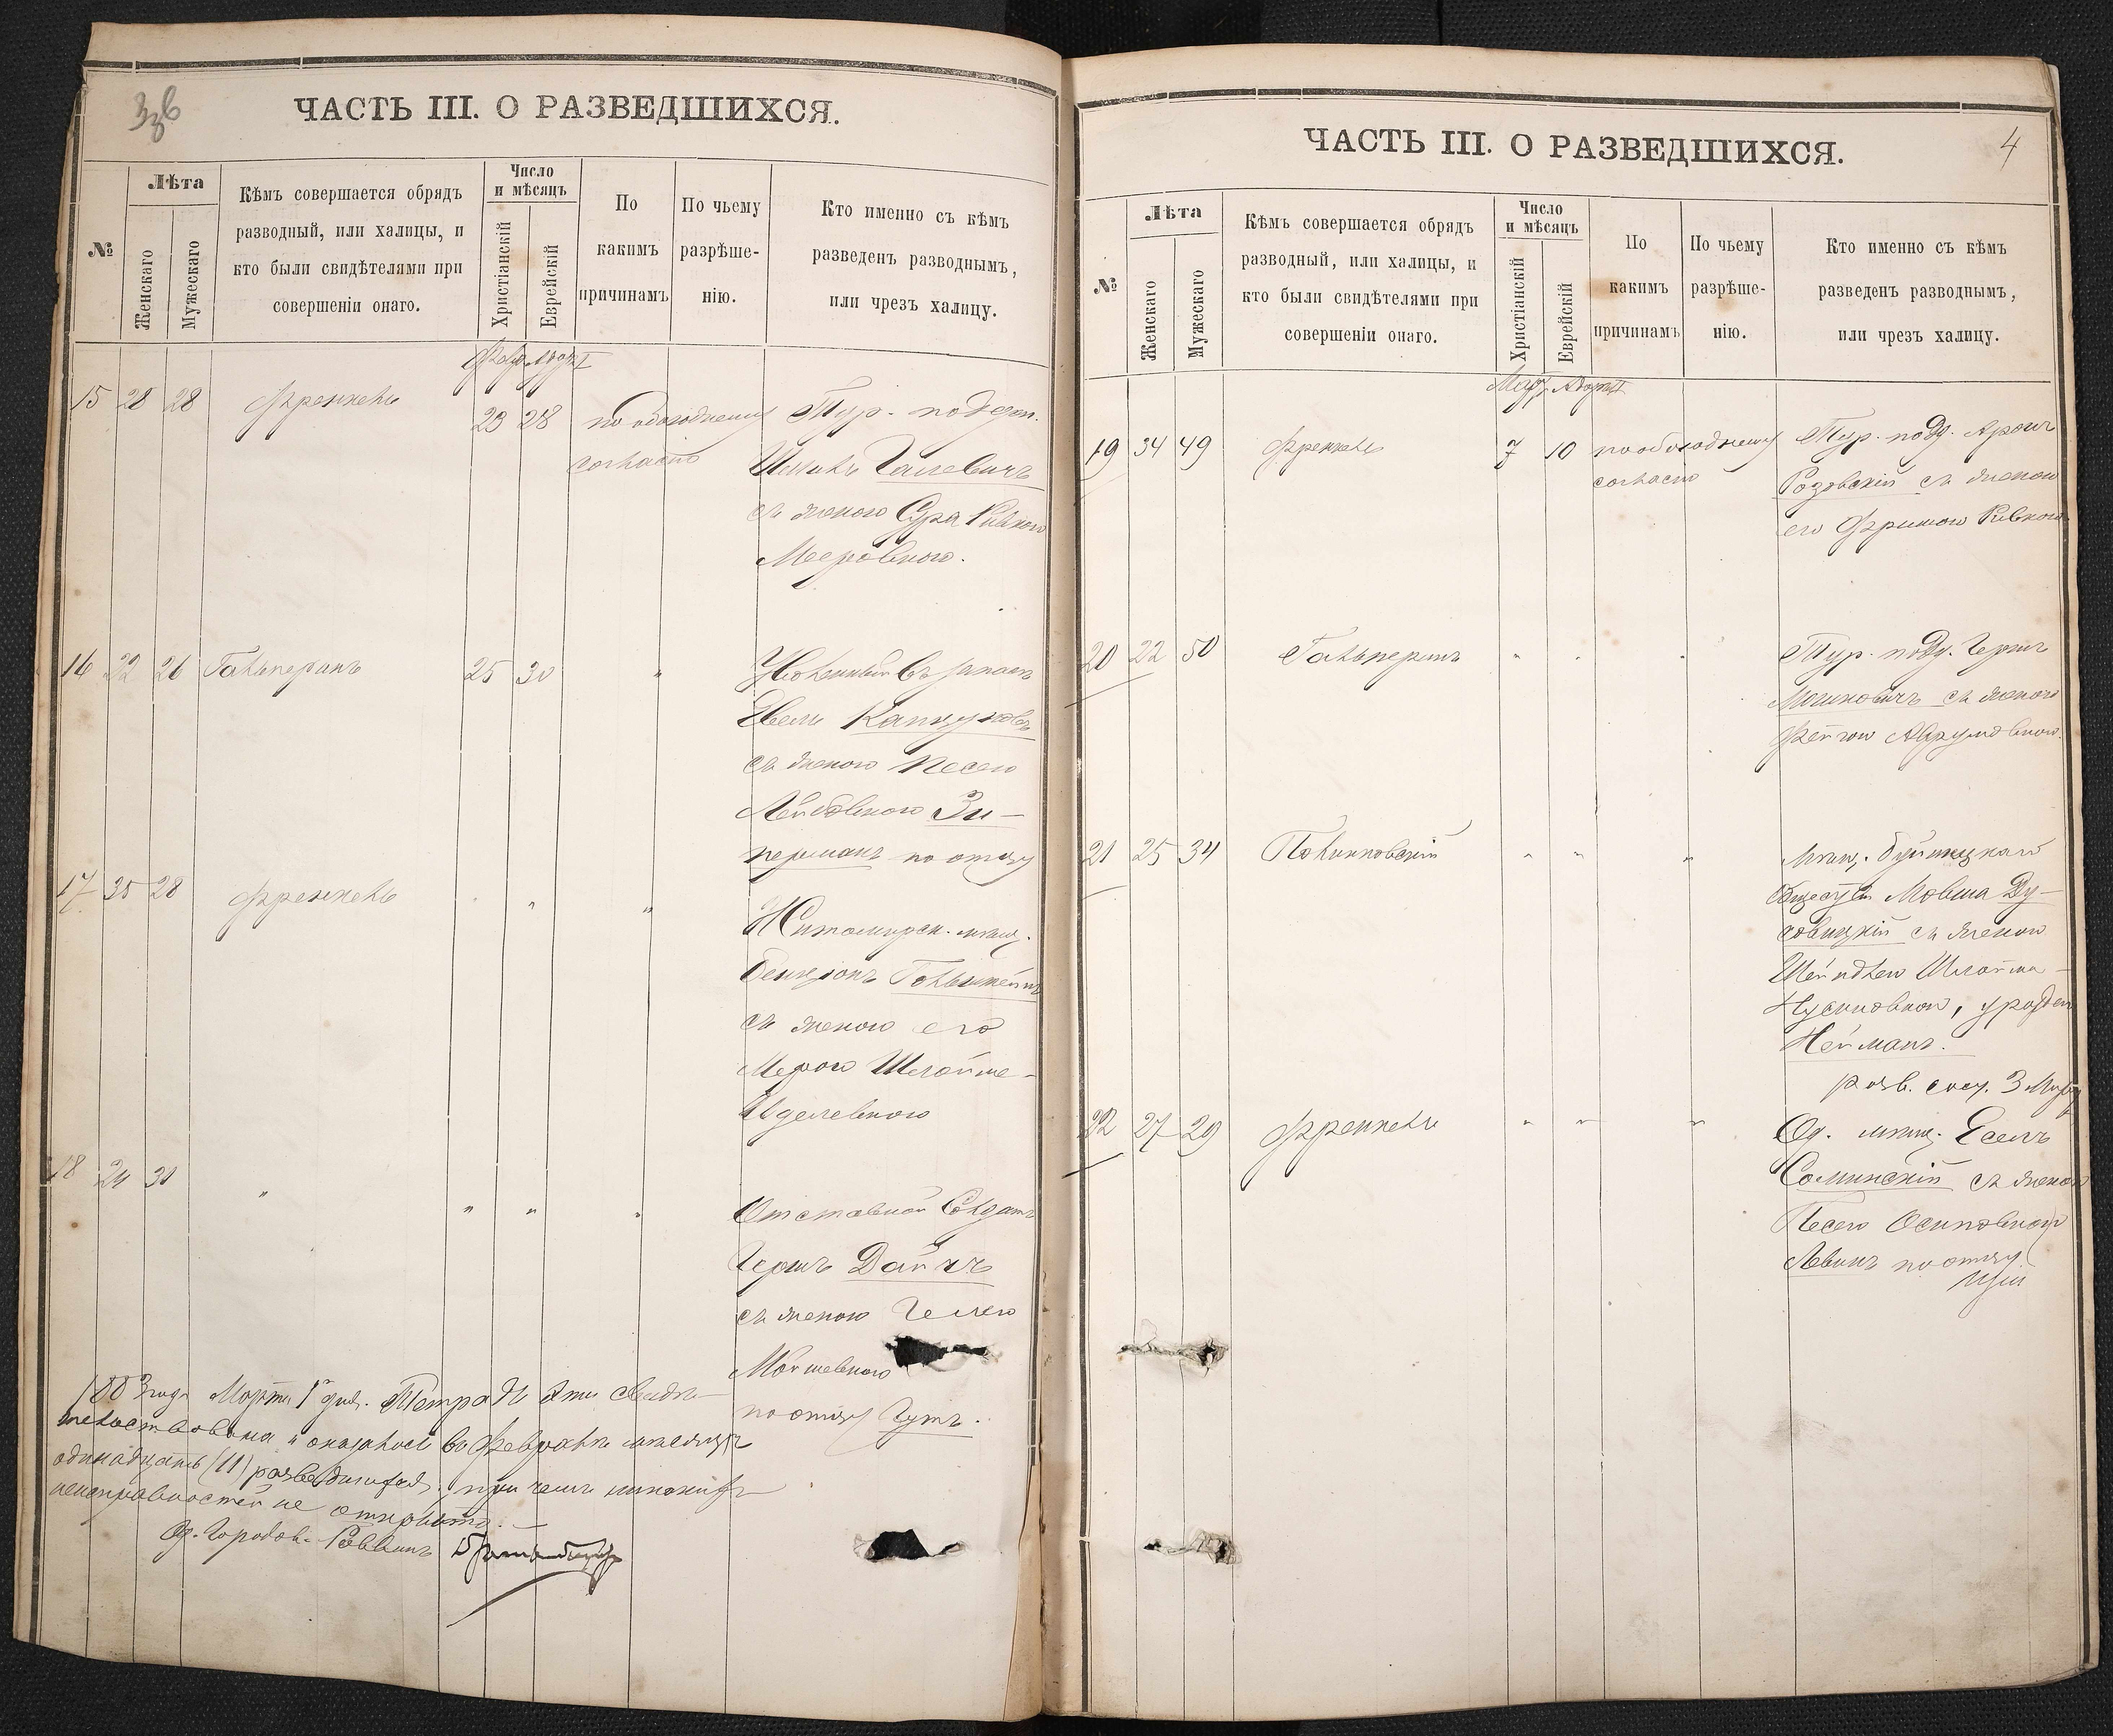 ЧАСТЬ III. О РАЗВЕДШИХСЯ.
№
Лѣта
Женскаго
Мужескаго
Кѣмъ совершается обрядъ
разводный, или халицы, и
кто были свидѣтелями при
совершеніи онаго.
Число
и мѣсяцъ
Христіанскій
Еврейскій
По
какимъ
причинамъ
По чьему
разрѣше-
нію.
Кто именно съ кѣмъ
разведенъ разводнымъ,
или чрезъ халицу.
15 28 28 Френкель 23 28 по обоюдному Тур. поддан.
согласію
съ женою Сура Ривкою
Мееровною.
16 22 26 Гальперинъ 25 30 "
съ женою Песею
Лейбовною Зи-
перманъ по отцу
17 35 28 Френкель " " "
Житомирск. мѣщ.
Бенціонъ Гольштейнъ
съ женою его
Мерою Шлойме-
Иделевною
18 24 30 " " " "
Отставной Солдатъ
Гершъ Дайчъ
съ женою
Мошевною
по отцу Гутъ.
1883 года Марта 1 дня. Тетрадь эта свидѣ-
тельствована и оказалось въ Февралѣ мѣсяцѣ
одинадцать (11) разведшихся, при чемъ никакихъ
неисправностей не открыто.
Од. Городов. Раввинъ
ЧАСТЬ III. О РАЗВЕДШИХСЯ.
4
№
Лѣта
Женскаго
Мужескаго
Кѣмъ совершается обрядъ
разводный, или халицы, и
кто были свидѣтелями при
совершеніи онаго.
Число
и мѣсяцъ
Христіанскій
Еврейскій
По
какимъ
причинамъ
По чьему
разрѣше-
нію.
Кто именно съ кѣмъ
разведенъ разводнымъ,
или чрезъ халицу.
19 34 49 Френкель 7 10 по обоюдному Тур. подд. Аронъ
согласію
съ женою
его Фримою Ривкою
20 22 50 Гальперинъ " " "
Тур. подд. Гершъ
съ женою
Фейгою
21 25 34 Полинковскій " " "
Мовша Ду-
совицкій съ женою
Шейндлею Шлойма-
Нусиновною, урожден
Нейманъ.
22 27 29 Френкель " " "
Од. мѣщ. Есель
Соминскій съ женою
Песею Осиповною
Левинъ по отцу